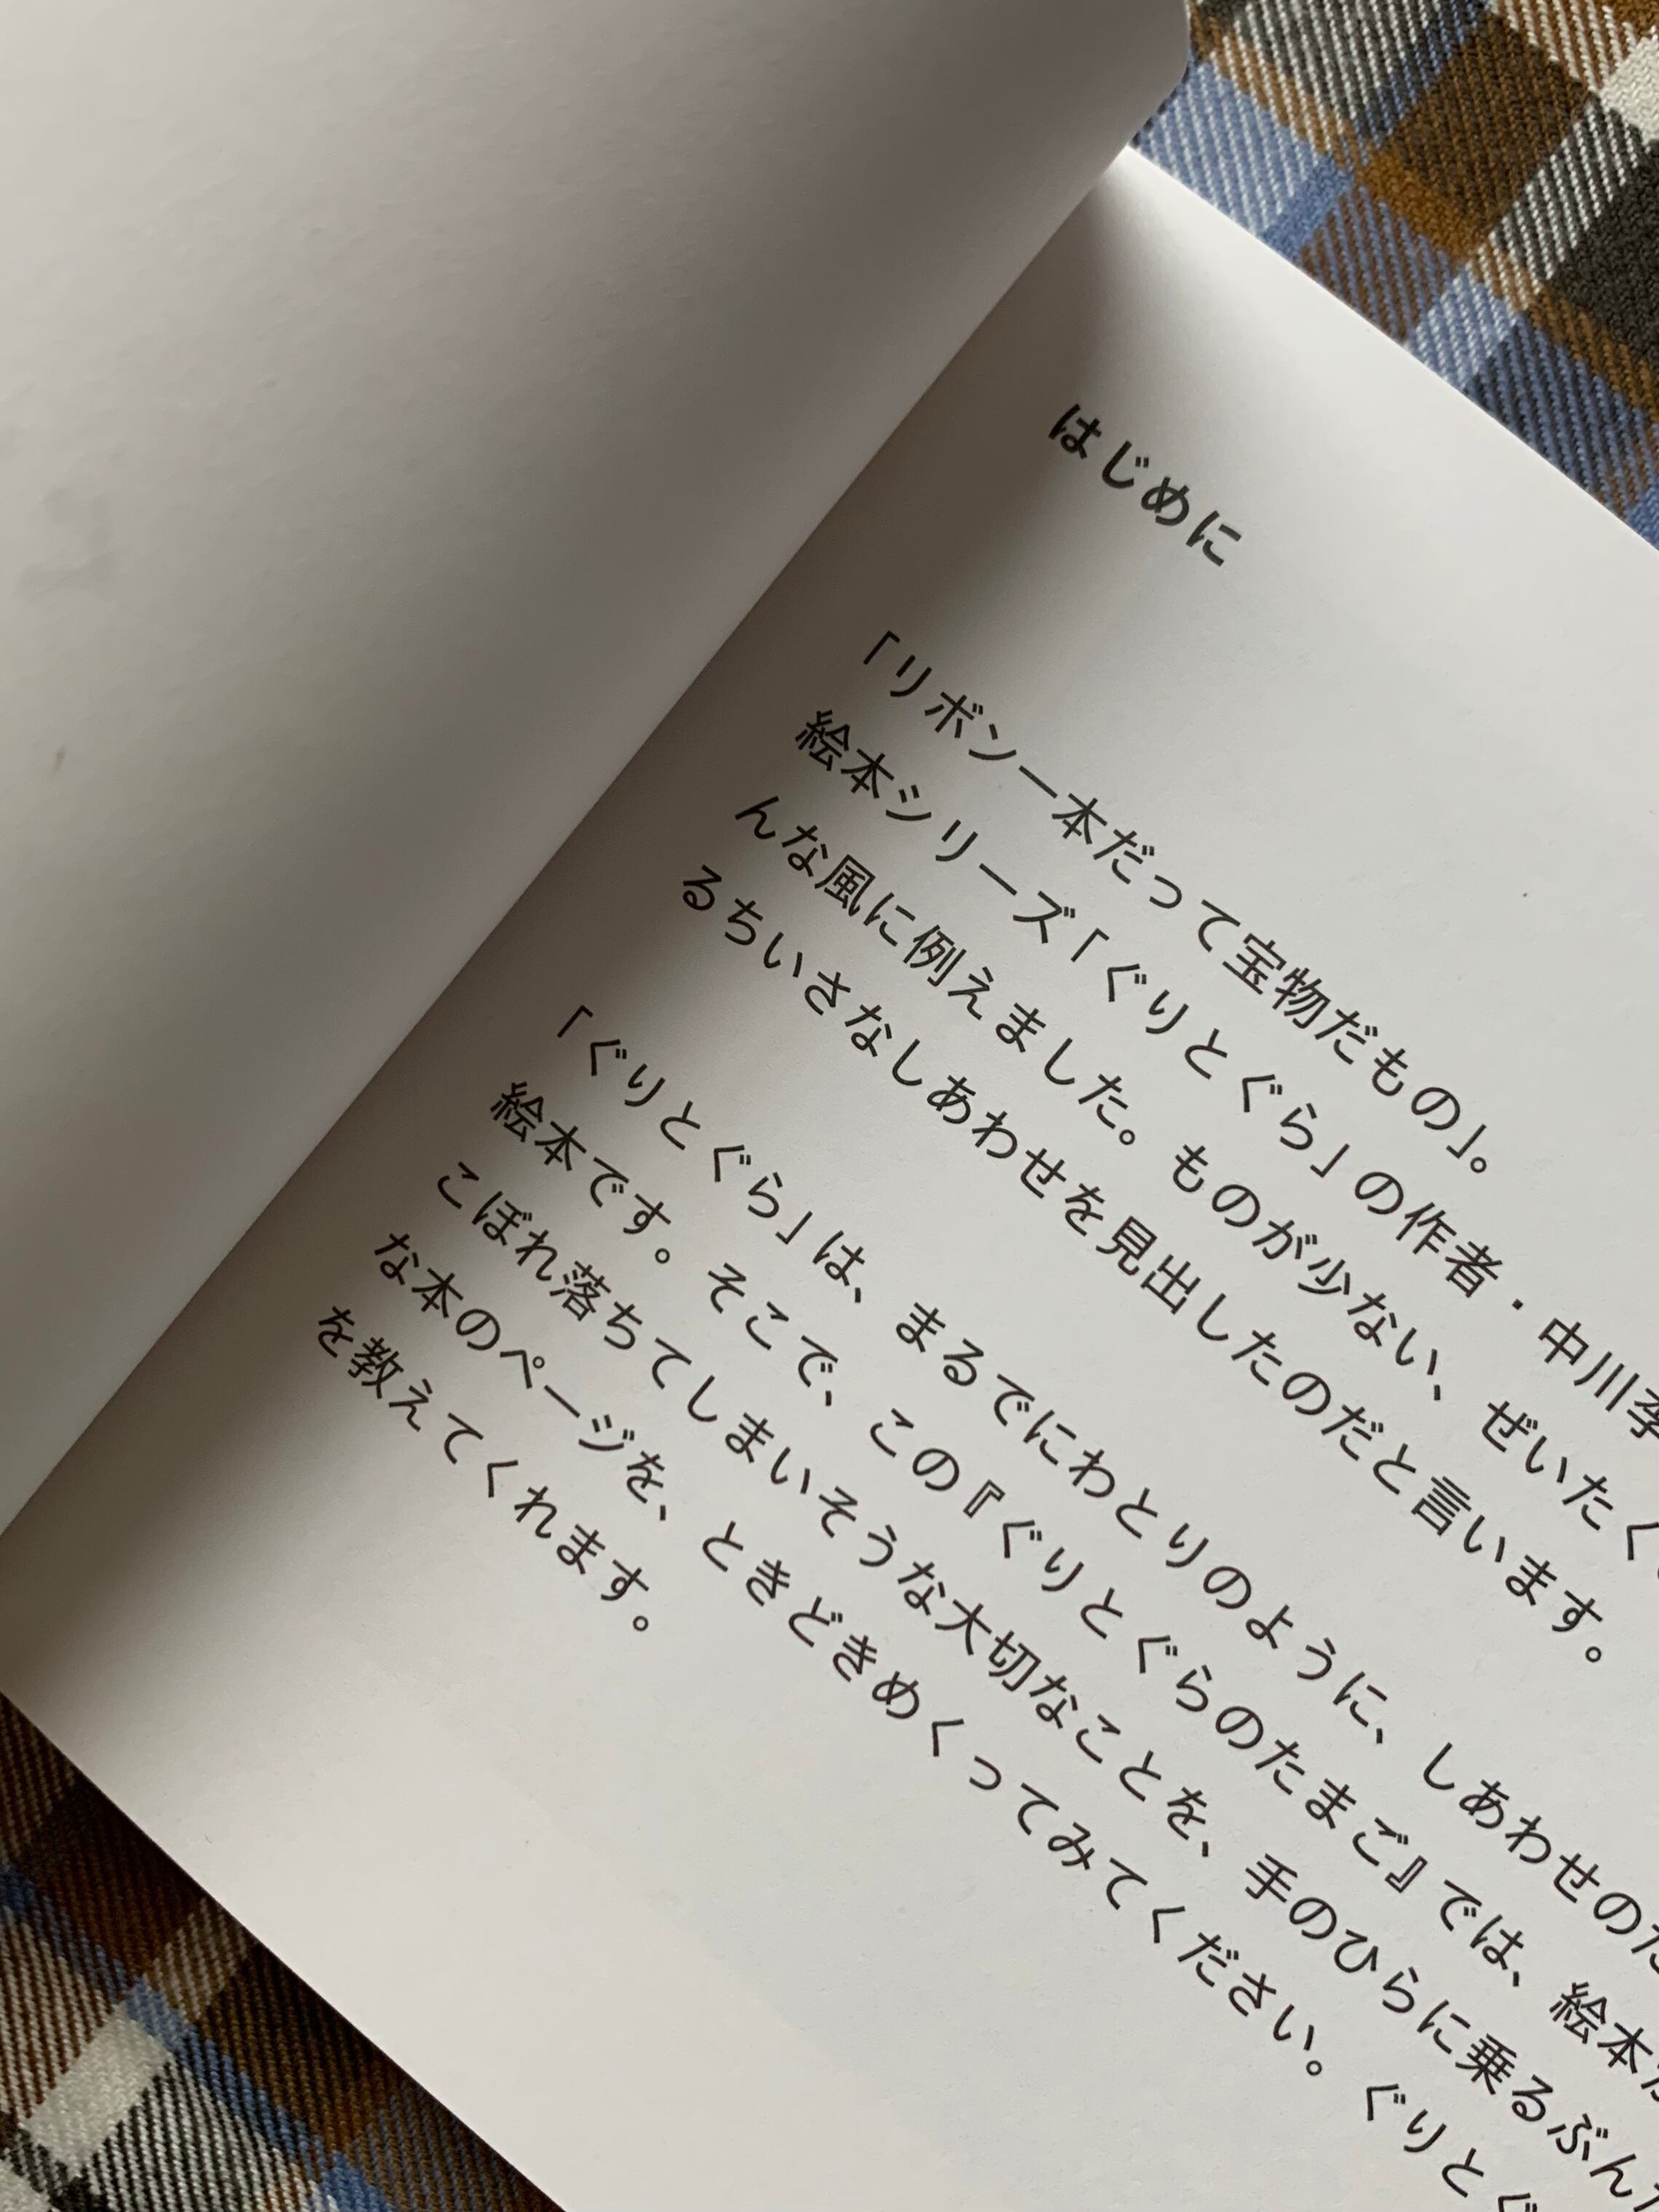 はじめに
「リボン一本だって宝物だもの」。
絵本シリーズ「ぐりとぐら」の作者・中川李
んな風に例えました。ものが少ない、ぜいたく
るちいさなしあわせを見出したのだと言います。
「ぐりとぐら」は、まるでにわとりのように、しあわせのた
絵本です。そこで、この『ぐりとぐらのたまご』では、絵本か
こぼれ落ちてしまいそうな大切なことを、手のひらに乗るぶん
な本のページを、ときどきめくってみてください。ぐりとぐ
を教えてくれます。